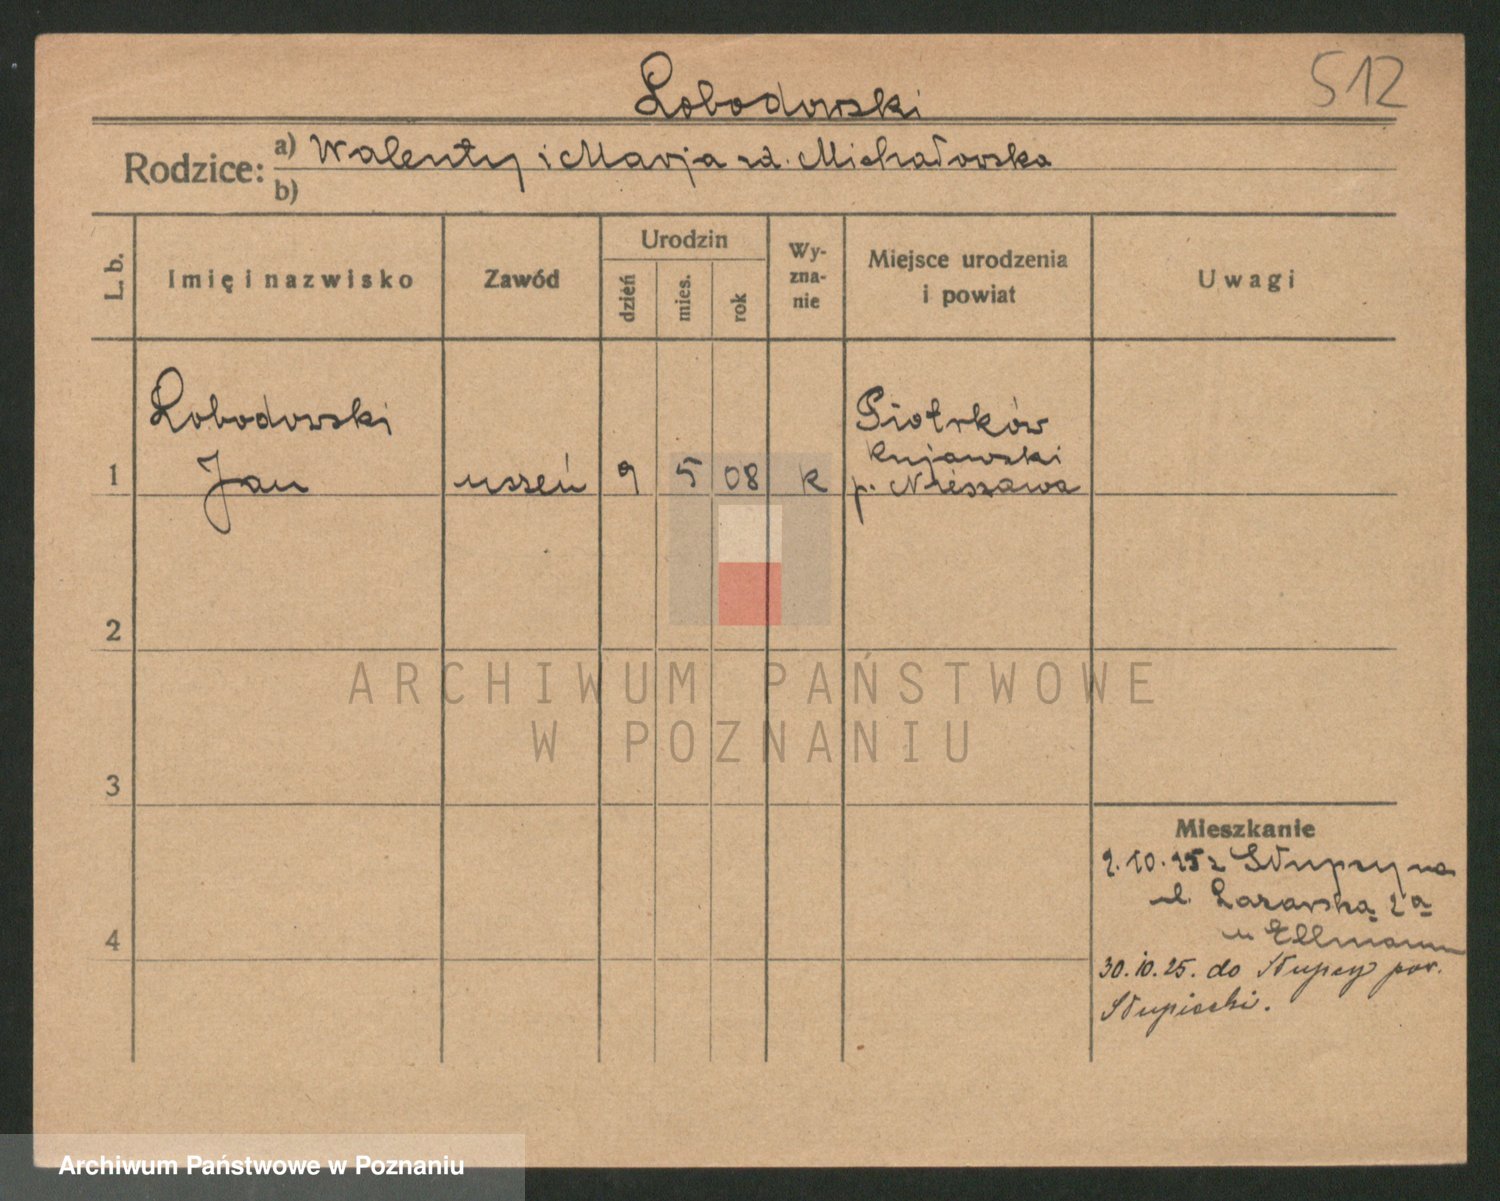 Łobodowski
512
Rodzice:
a) Walenty i Marja zd. Michałowska
b)
L. b.
Imię i nazwisko
Zawód
Urodzin
dzień
mies.
rok
Wy-
zna-
nie
Miejsce urodzenia
i powiat
Uwagi
Łobodowski
Jan
1
uczeń
9
5
08
k
Piotrków
Kujawski
p. Nieszawa
2
3
4
Mieszkanie
2.10.25 z Słupcy na
ul. Łazarską 2a
u Ellmann
30.10.25. do Słupcy pow.
Słupiecki.
ARCHIWUM PAŃSTWOWE
W POZNANIU
Archiwum Państwowe w Poznaniu